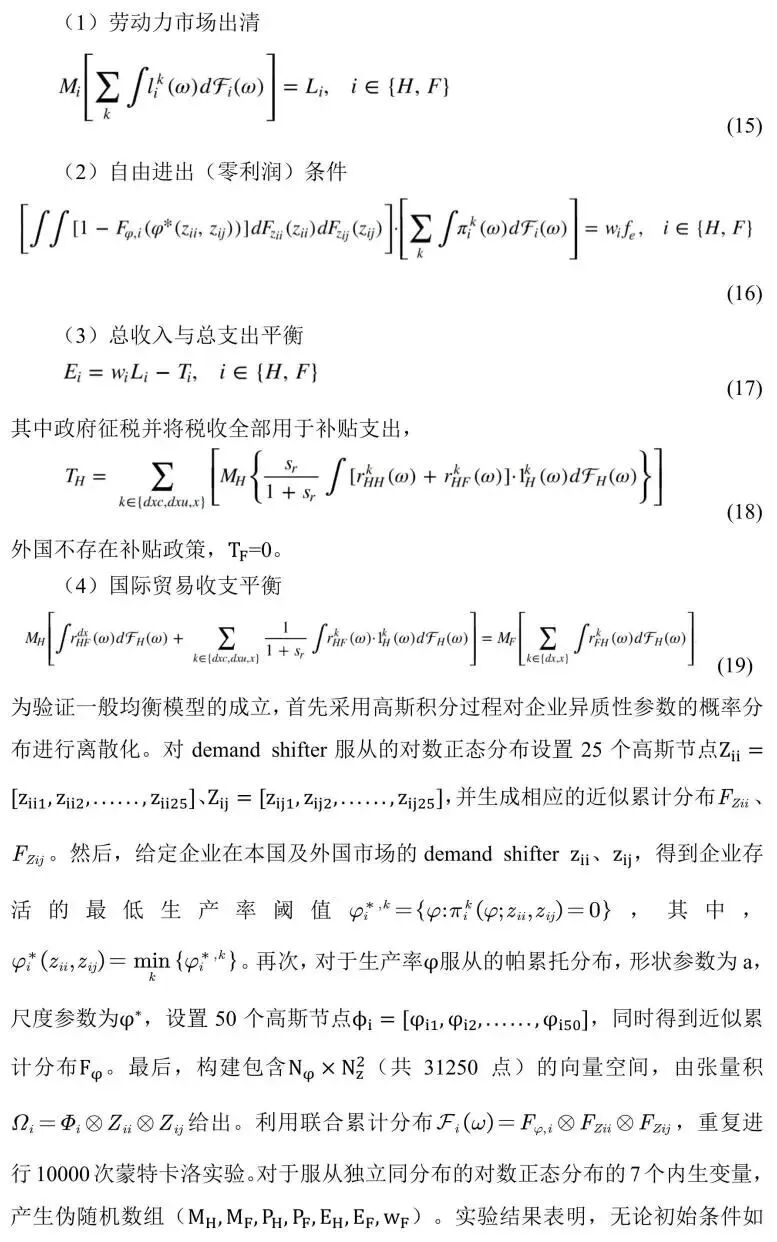 （1）劳动力市场出清
M_i[∑_k ∫l_i^k(ω)dℱ_i(ω)] = L_i, i ∈ {H, F}
(15)
（2）自由进出（零利润）条件
[∫∫[1 − F_{φ,i}(φ*(z_{ii}, z_{ij}))]dF_{z_{ii}}(z_{ii})dF_{z_{ij}}(z_{ij})]·[∑_k ∫π_i^k(ω)dℱ_i(ω)] = w_i f_e, i ∈ {H, F}
(16)
（3）总收入与总支出平衡
E_i = w_i L_i − T_i, i ∈ {H, F}
(17)
其中政府征税并将税收全部用于补贴支出，
T_H = ∑_{k∈{dxc,dxu,x}} [M_H{s_r/(1 + s_r) ∫[r_{HH}^k(ω) + r_{HF}^k(ω)]·1_H^k(ω)dℱ_H(ω)}]
(18)
外国不存在补贴政策，T_F=0。
（4）国际贸易收支平衡
M_H[∫r_{HF}^{dx}(ω)dℱ_H(ω) + ∑_{k∈{dxc,dxu,x}} 1/(1 + s_r) ∫r_{HF}^k(ω)·1_H^k(ω)dℱ_H(ω)] = M_F[∑_{k∈{dx,x}} ∫r_{FH}^k(ω)dℱ_H(ω)] (19)
为验证一般均衡模型的成立，首先采用高斯积分过程对企业异质性参数的概率分
布进行离散化。对 demand shifter 服从的对数正态分布设置 25 个高斯节点Z_{ii} =
[z_{ii1}, z_{ii2}, ......, z_{ii25}]、Z_{ij} = [z_{ij1}, z_{ij2}, ......, z_{ij25}]，并生成相应的近似累计分布F_{Zii}、
F_{Zij}。然后，给定企业在本国及外国市场的 demand shifter z_{ii}、z_{ij}，得到企业存
活的最低生产率阈值 φ_i^{*,k}={φ:π_i^k(φ;z_{ii},z_{ij})=0}，其中，
φ_i^*(z_{ii},z_{ij})=min_k{φ_i^{*,k}}。再次，对于生产率φ服从的帕累托分布，形状参数为 a，
尺度参数为φ*，设置 50 个高斯节点ϕ_i = [φ_{i1}, φ_{i2}, ......, φ_{i50}]，同时得到近似累
计分布F_φ。最后，构建包含N_φ × N_z^2（共 31250 点）的向量空间，由张量积
Ω_i=Φ_i⊗Z_{ii}⊗Z_{ij}给出。利用联合累计分布ℱ_i(ω)=F_{φ,i}⊗F_{Zii}⊗F_{Zij}，重复进
行 10000 次蒙特卡洛实验。对于服从独立同分布的对数正态分布的 7 个内生变量，
产生伪随机数组（M_H, M_F, P_H, P_F, E_H, E_F, w_F）。实验结果表明，无论初始条件如